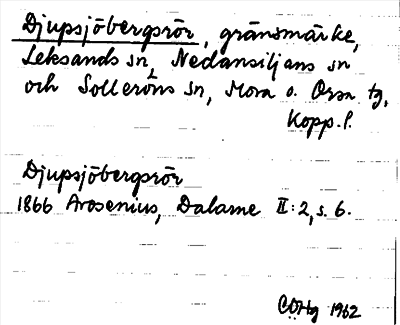 Djupsjöbergsrör, gränsmärke,
Leksands sn, Nedansiljans sn
och Solleröns sn, Mora o. Orsa tg,
Kopp. l.
Djupsjöbergsrör
1866 Arosenius, Dalarne II:2, s. 6.
1962